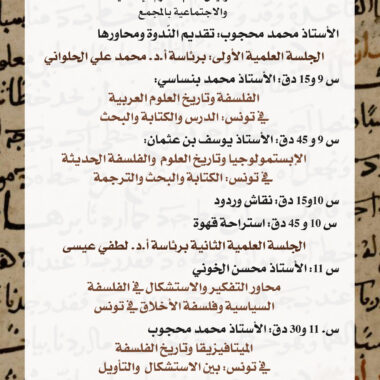 والاجتماعية بالمجمع
الأستاذ محمد محجوب: تقديم النّدوة ومحاورها
الجلسة العلمية الأولى: برئاسة أ.د. محمد علي الحلواني
س 9 و15 دق: الأستاذ محمد بنساسي:
الفلسفة وتاريخ العلوم العربية
في تونس: الدرس والكتابة والبحث
س 9 و 45 دق: الأستاذ يوسف بن عثمان:
الإبستمولوجيا وتاريخ العلوم والفلسفة الحديثة
في تونس: الكتابة والبحث والترجمة
س 10و15 دق: نقاش وردود
س 10 و 45 دق: استراحة قهوة
الجلسة العلمية الثانية برئاسة أ.د. لطفي عيسى
س 11: الأستاذ محسن الخوني
محاور التفكير والاستشكال في الفلسفة
السياسية وفلسفة الأخلاق في تونس
س. 11 و30 دق: الأستاذ محمد محجوب
الميتافيزيقا وتاريخ الفلسفة
في تونس: بين الاستشكال والتأويل